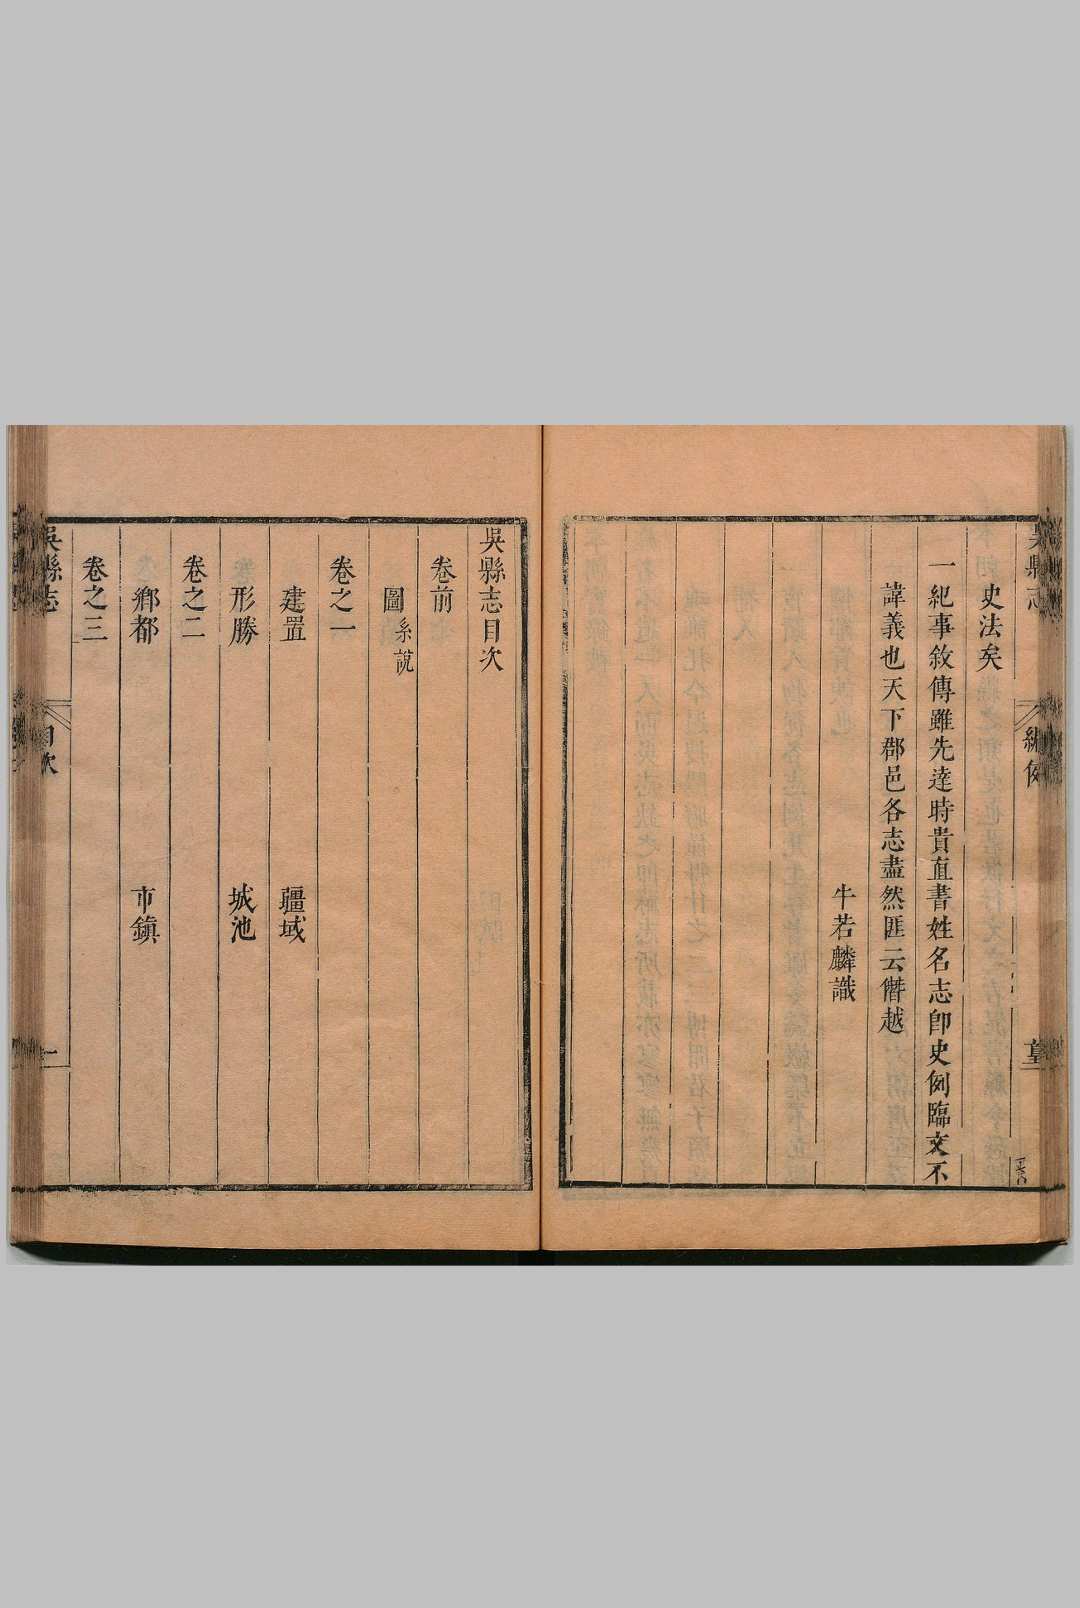 史法矣
一紀事敘傳雖先達時貴直書姓名志卽史例臨文不
諱義也天下郡邑各志盡然匪云僭越
牛若麟識
吳縣志目次
卷前
圖系說
卷之一
建置 疆域
形勝 城池
卷之二
鄕都 市鎭
卷之三
吳縣志
目次